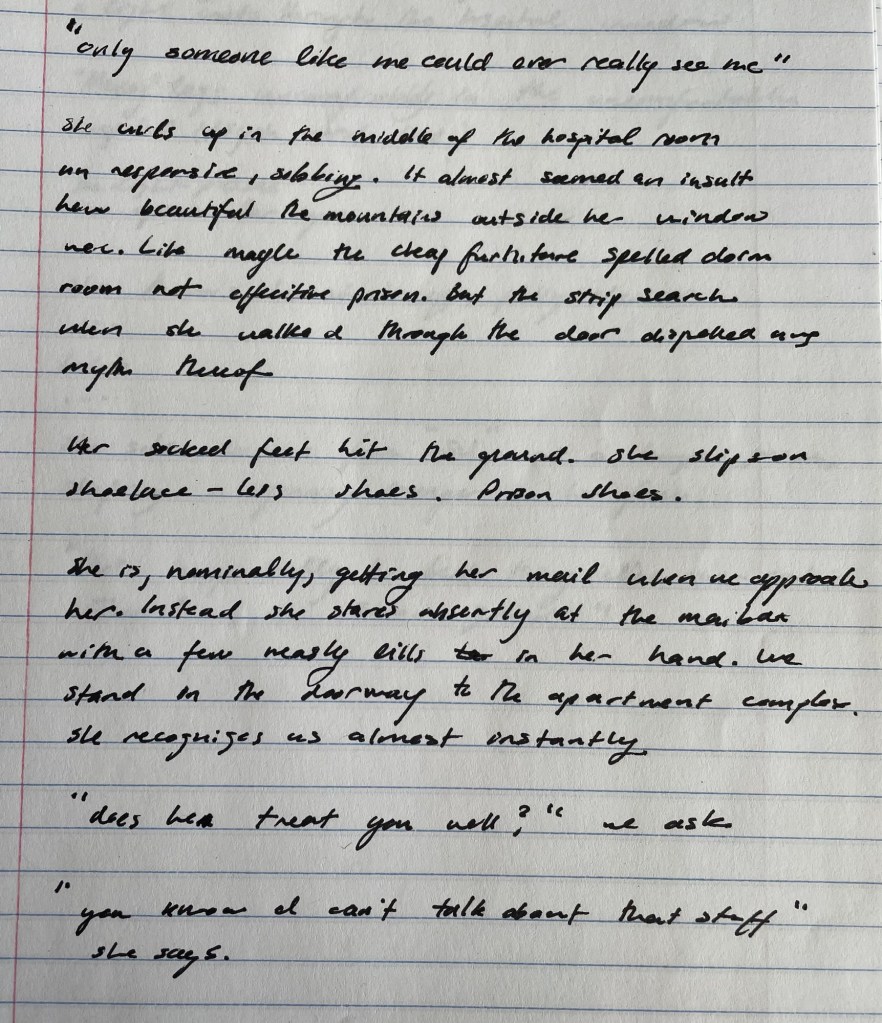 "only someone like me could ever really see me"
She curls up in the middle of the hospital room
un responsive, sobbing. It almost seemed an insult
how beautiful the mountains outside her window
were. Like maybe the cheap furniture spelled dorm
room not effective prison. But the strip search
when she walked through the door dispelled any
myth thereof
Her socked feet hit the ground. She slips on
shoelace-less shoes. Prison shoes.
She is, nominally, getting her mail when we approach
her. Instead she stares absently at the mailbox
with a few measly bills in her hand. We
stand in the doorway to the apartment complex.
She recognizes us almost instantly
"does he treat you well?" we ask
"you know I can't talk about that stuff"
she says.